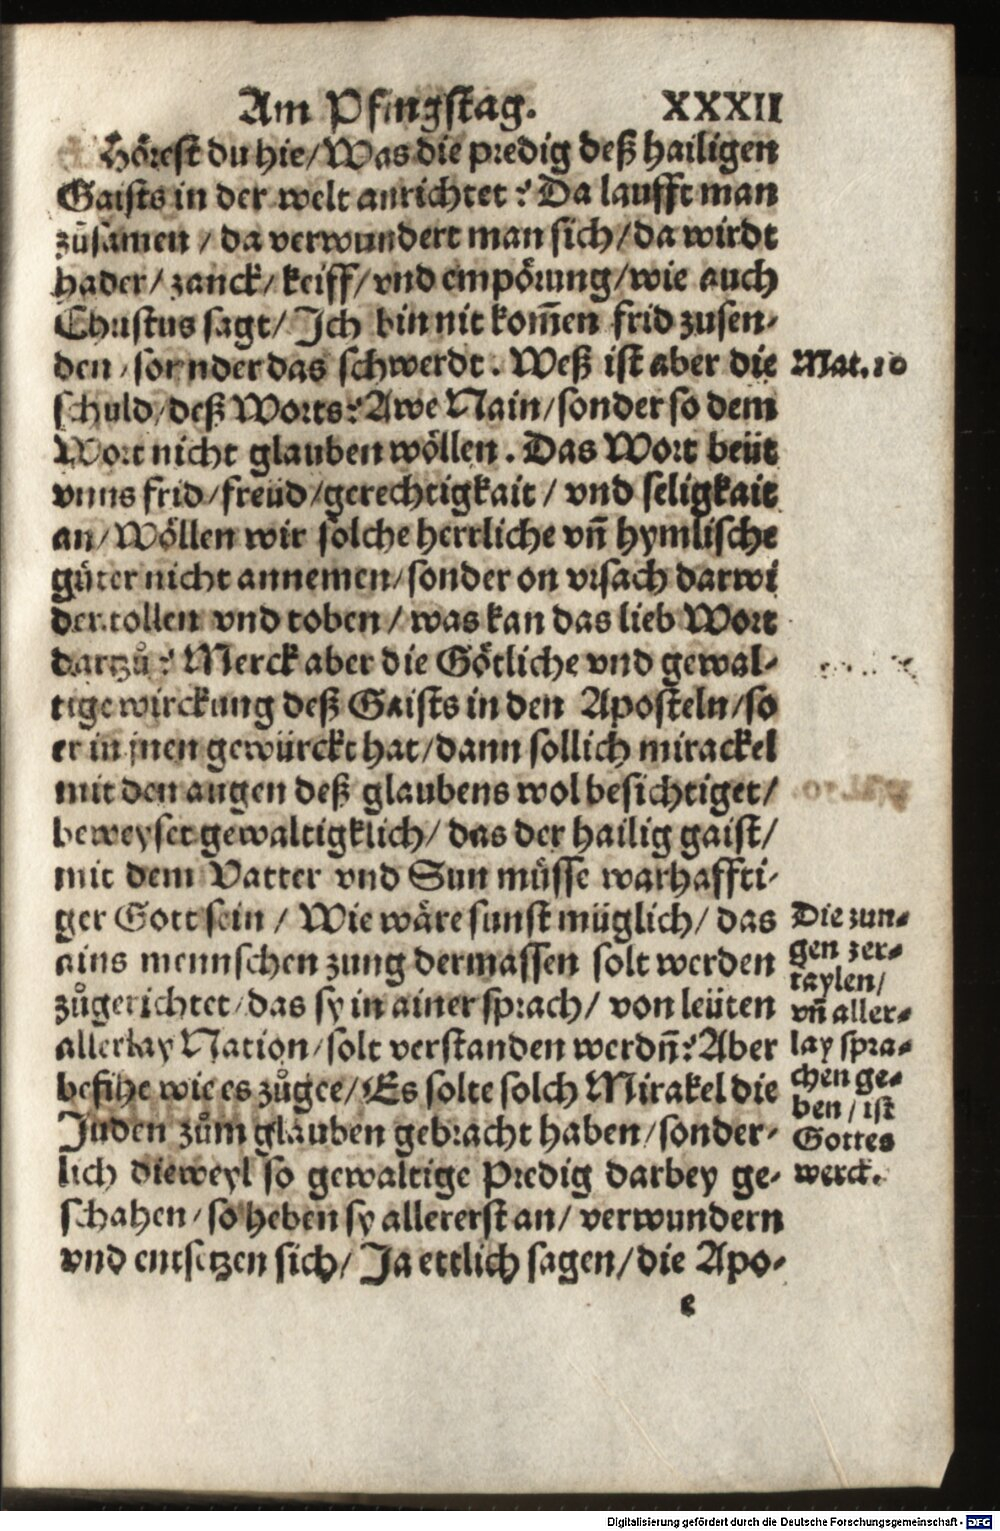 Am Pfingstag. XXXII
Hörest du hie/Was die predig deß hailigen
Gaists in der welt anrichtet? Da laufft man
zůsamen / da verwundert man sich/da wirdt
hader/ zanck/ keiff/ vnd empörung/wie auch
Christus sagt/ Ich bin nit kom̃en frid zusen-
den/sornder das schwerdt. Weß ist aber die
schuld/deß Worts? Awe Nain/sonder so dem
Wort nicht glauben wöllen. Das Wort beüt
vnns frid/freüd/gerechtigkait / vnd seligkait
an/Wöllen wir solche herrliche vn̄ hymlische
güter nicht annemen/sonder on vrsach darwi
der tollen vnd toben/ was kan das lieb Wort
dartzů? Merck aber die Götliche vnd gewal-
tige wirckung deß Gaists in den Aposteln/so
er in jnen gewürckt hat/dann sollich mirackel
mit den augen deß glaubens wol besichtiget/
beweyset gewaltigklich/ das der hailig gaist/
mit dem Vatter vnd Sun müsse warhaffti-
ger Gott sein / Wie wäre sunst müglich/ das
ains mennschen zung dermassen solt werden
zůgerichtet/das sy in ainer sprach/ von leüten
allerlay Nation/solt verstanden werdn̄? Aber
besihe wie es zůgee/ Es solte solch Mirakel die
Juden zům glauben gebracht haben/sonder-
lich dieweyl so gewaltige Predig darbey ge-
schahen/so heben sy allererst an/ verwundern
vnd entsetzen sich/ Ja ettlich sagen/die Apo-
e
Mat.10
Die zun-
gen zer-
taylen/
vn̄ aller-
lay spra-
chen ge-
ben/ist
Gottes
werck.
Digitalisierung gefördert durch die Deutsche Forschungsgemeinschaft - DFG